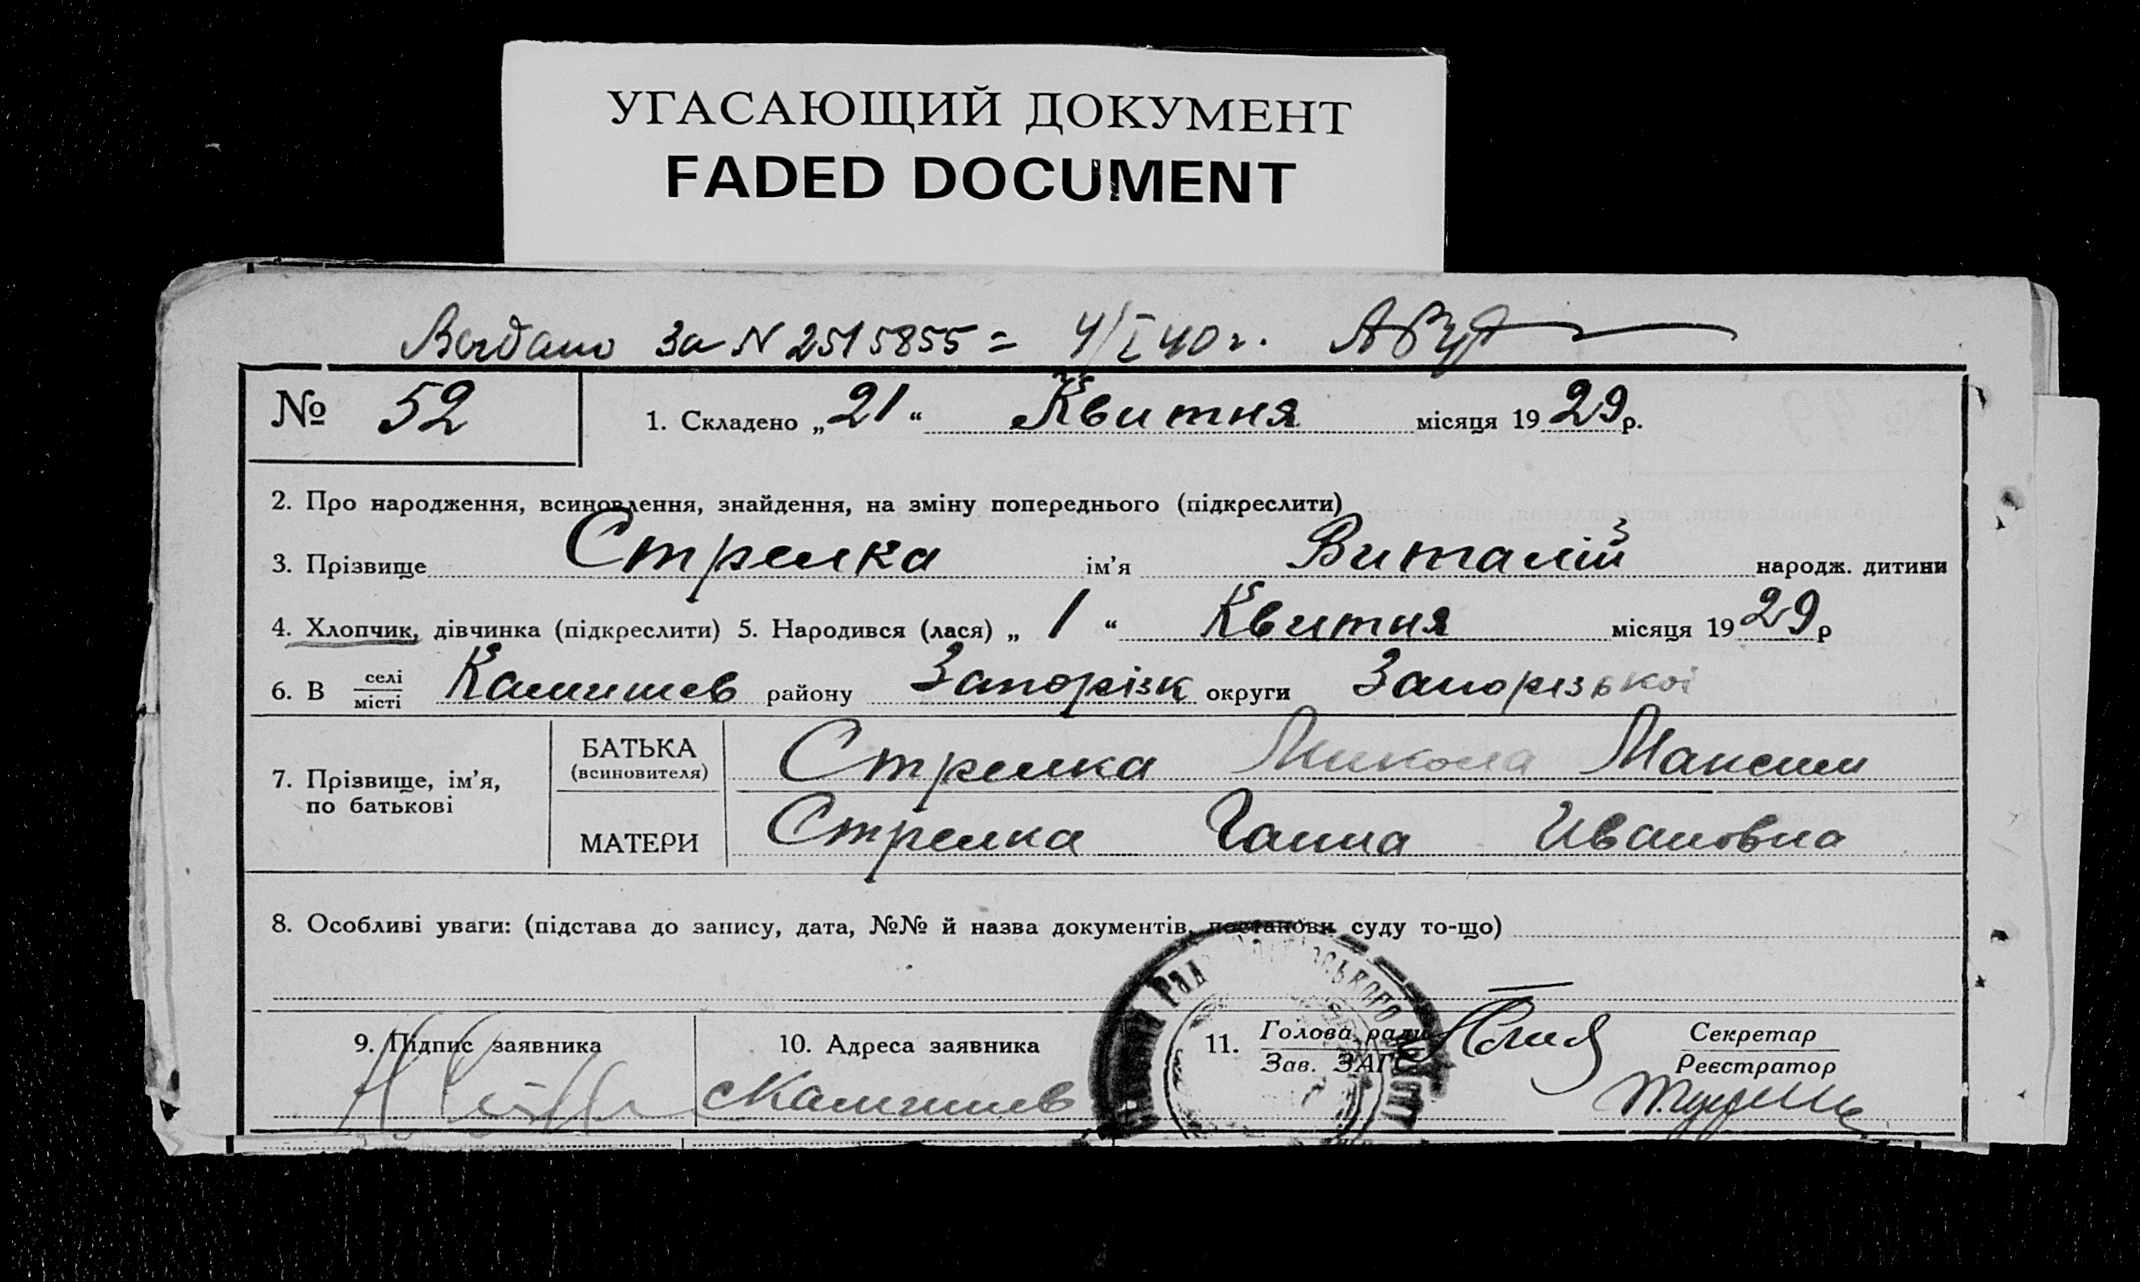 УГАСАЮЩИЙ ДОКУМЕНТ
FADED DOCUMENT
за N 2515855 = 4/I 40 г.
№ 52
1. Складено „21“ Квитня місяця 1929 р.
2. Про народження, всиновлення, знайдення, на зміну попереднього (підкреслити)
3. Прізвище Стрелка ім’я Виталій народж. дитини
4. Хлопчик, дівчинка (підкреслити) 5. Народився (лася) „ 1 “ Квитня місяця 1929 р
6. В селі місті району Запорізк округи Запорізької
7. Прізвище, ім’я, по батькові
БАТЬКА (всиновителя) Стрелка Микола Максим
МАТЕРИ Стрелка Ганна Ивановна
8. Особливі уваги: (підстава до запису, дата, №№ й назва документів, постанови суду то-що)
9. Підпис заявника
10. Адреса заявника
11. Голова ради Зав. ЗАГС
Секретар Реєстратор